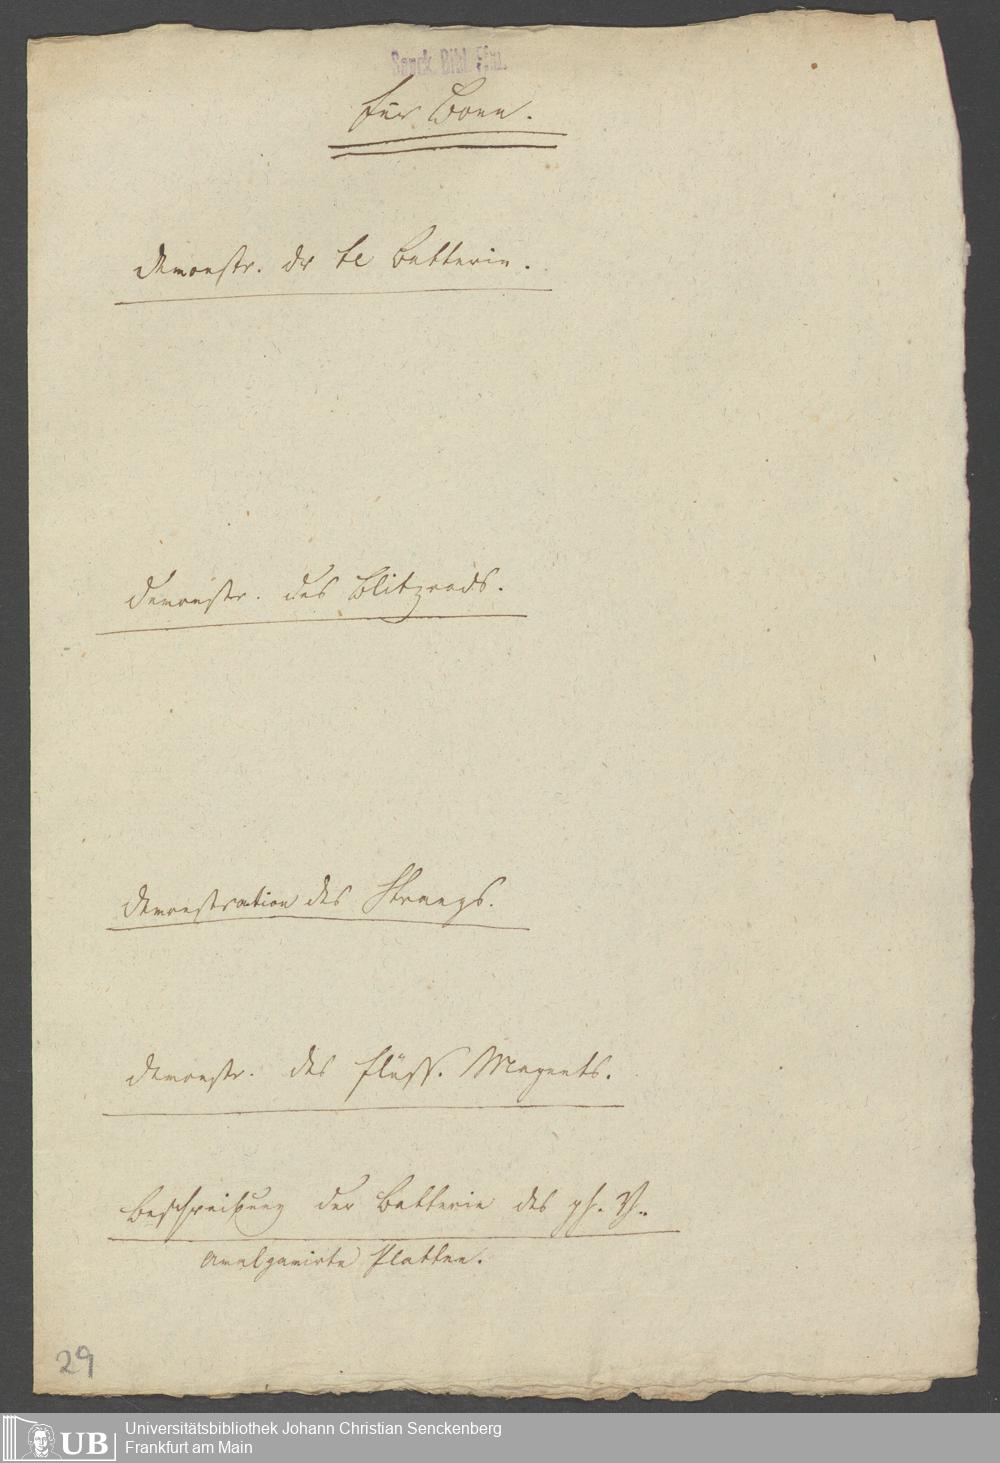 Senck. Bibl. Ffm.
für Bonn.
Demonstr. der Batterie.
Demonstr. des Blitzrads.
Demonstration des Strangs.
Demonstr. des flüss. Magnets.
Beschreibung der Batterie des ph. V.
Amalgamirte Platten.
29
UB Universitätsbibliothek Johann Christian Senckenberg
Frankfurt am Main